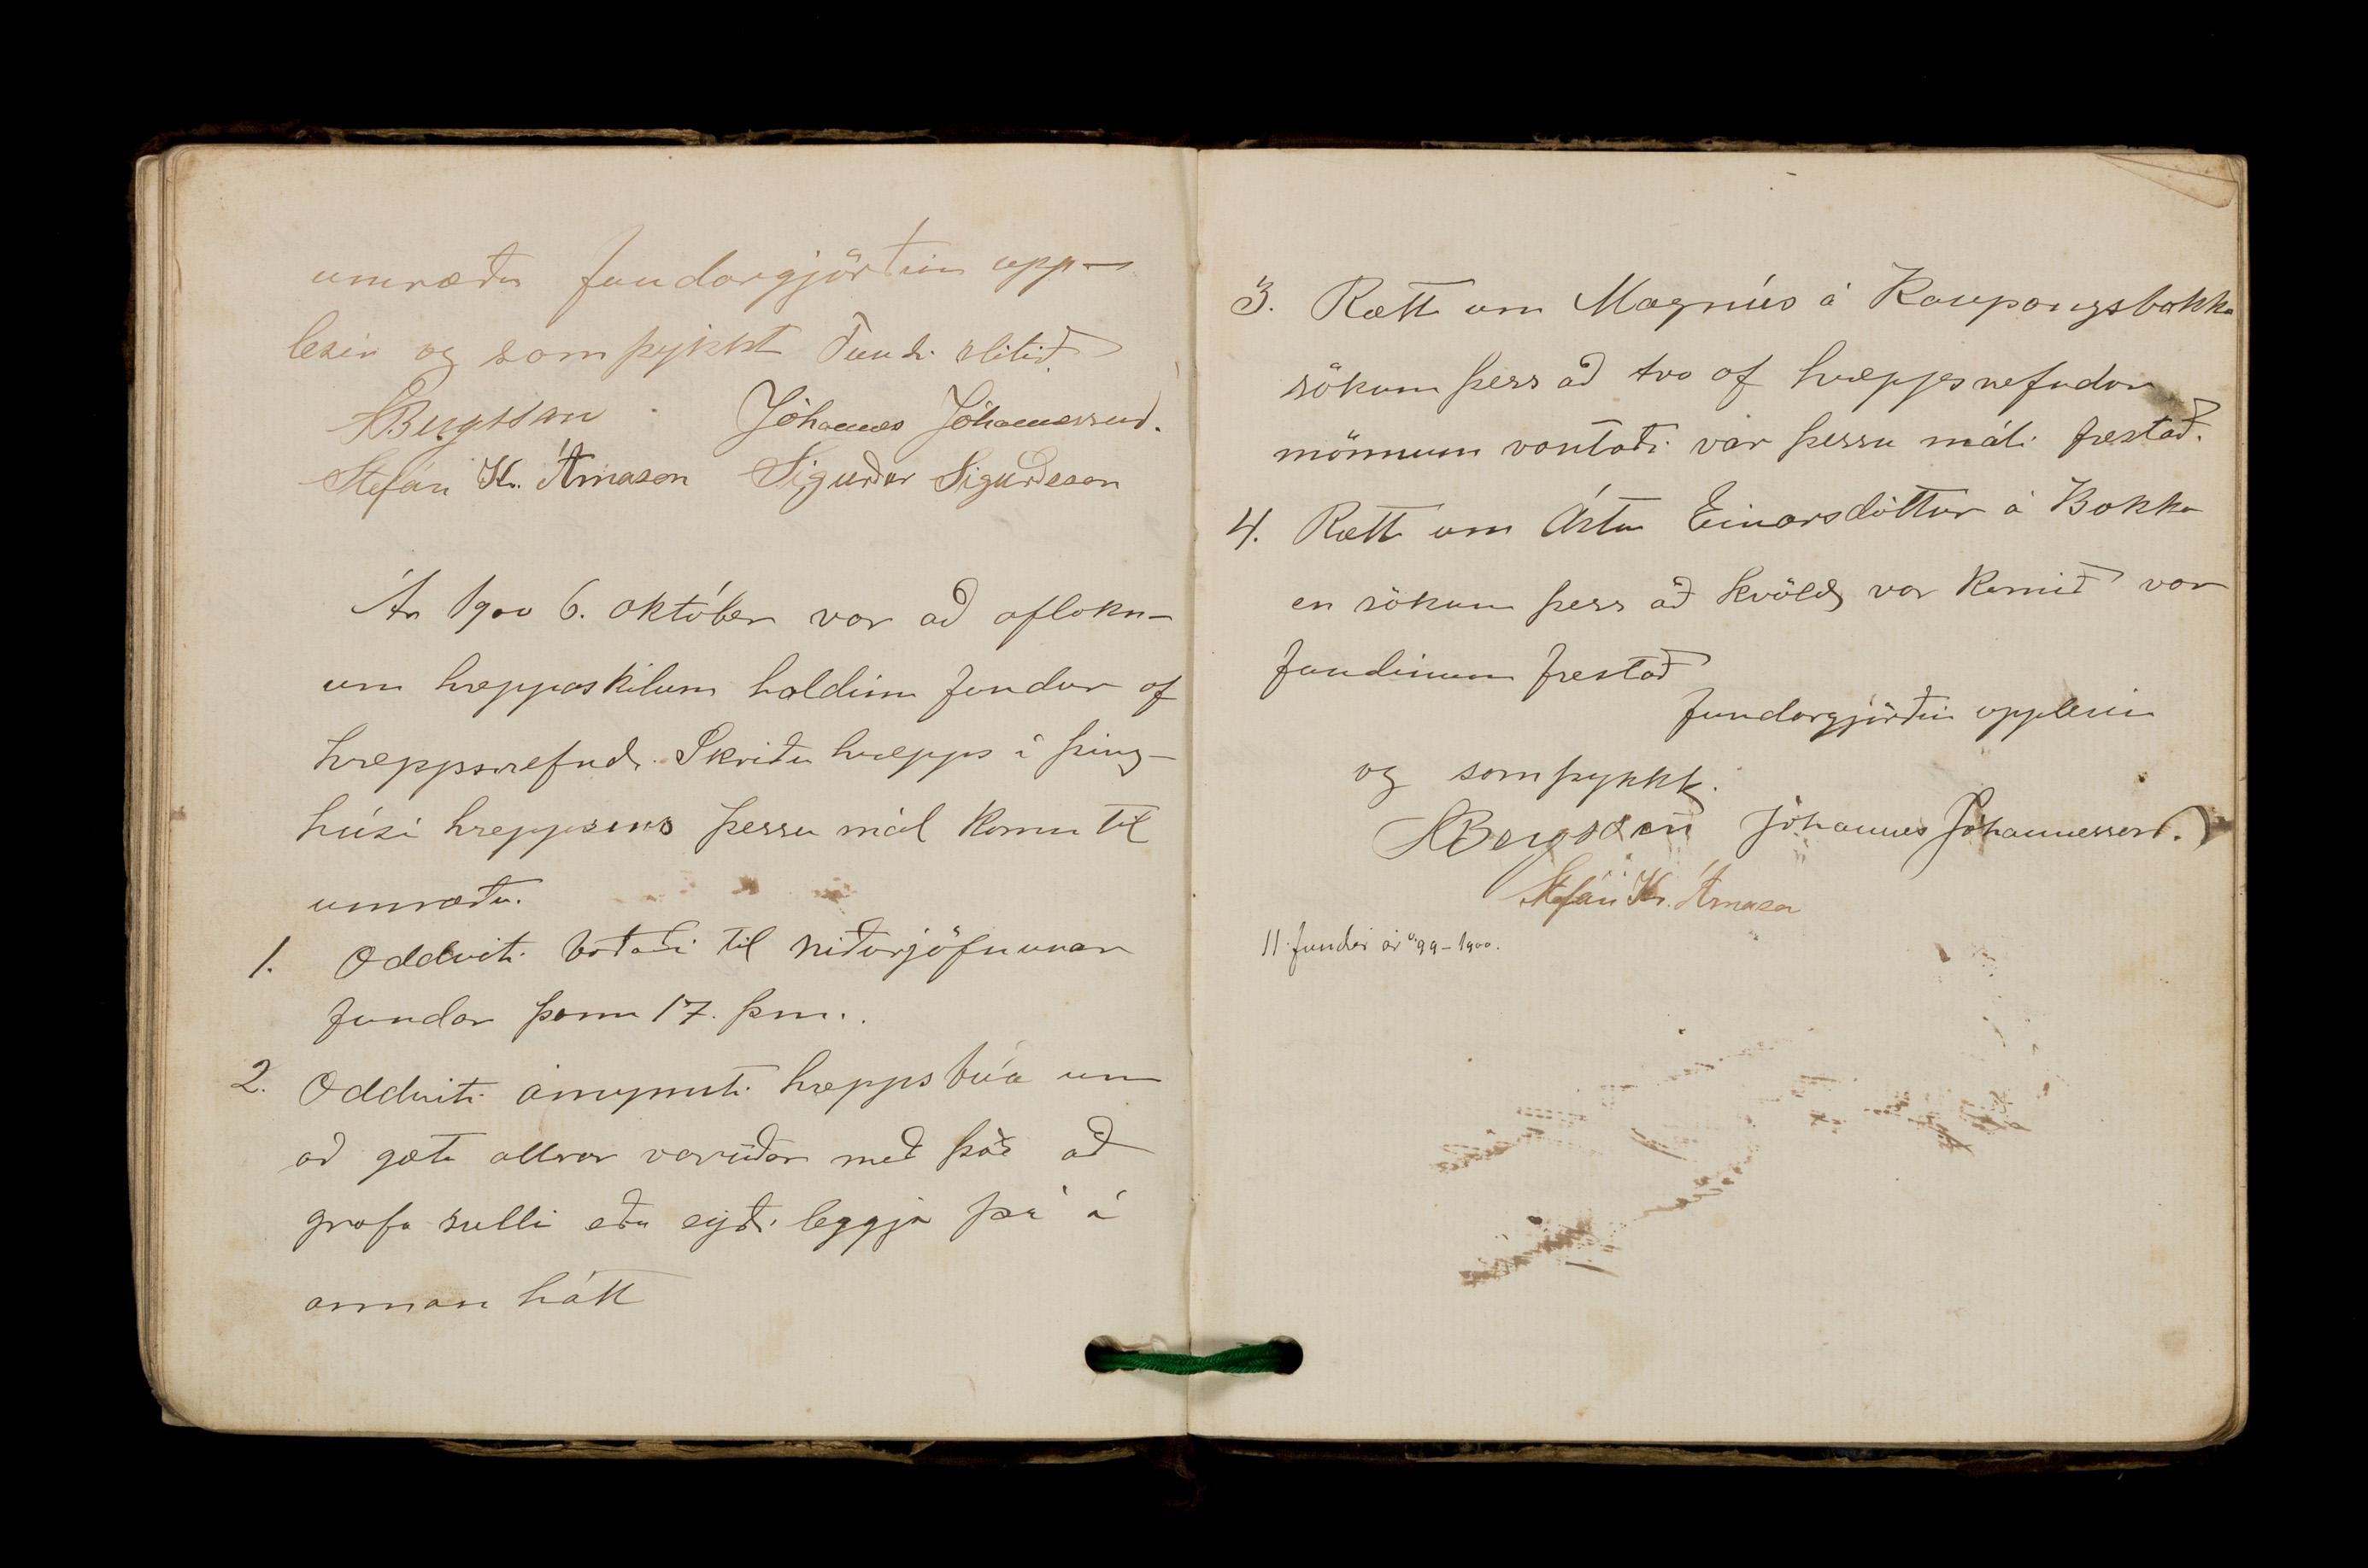 umræðu fundargjörðin upp-
lesin og samþykkt Fundi slitið.
SBergsson Jóhannes Jóhannesson.
Stefán Kr. Árnason Sigurður Sigurðsson
Ár 1900 6. október var að aflokn-
um hreppaskilum haldinn fundur af
hreppsnefnd Skriðu hrepps í þing-
húsi hreppsins þessu mál komu til
umræðu.
1. Oddviti boðaði til niðurjöfnunar
fundar þann 17. þm.
2. Oddviti ámynnti hreppsbúa um
að gæta allrar varúðar með það að
grafa sulli eða eyði leggja þá á
annan hátt
3. Rætt um Magnús á Kaupangsbakka
sökum þess að tvo af hreppsnefndar
mönnum vantaði var þessu máli frestað.
4. Rætt um Ástu Einarsdóttur á Bakka
en sökum þess að kvöld var komið var
fundinum frestað
fundargjörðin upplesin
og samþykkt.
SBergsson Jóhannes Jóhannesson.
Stefán Kr. Árnason
11 fundir ár 99-1900.